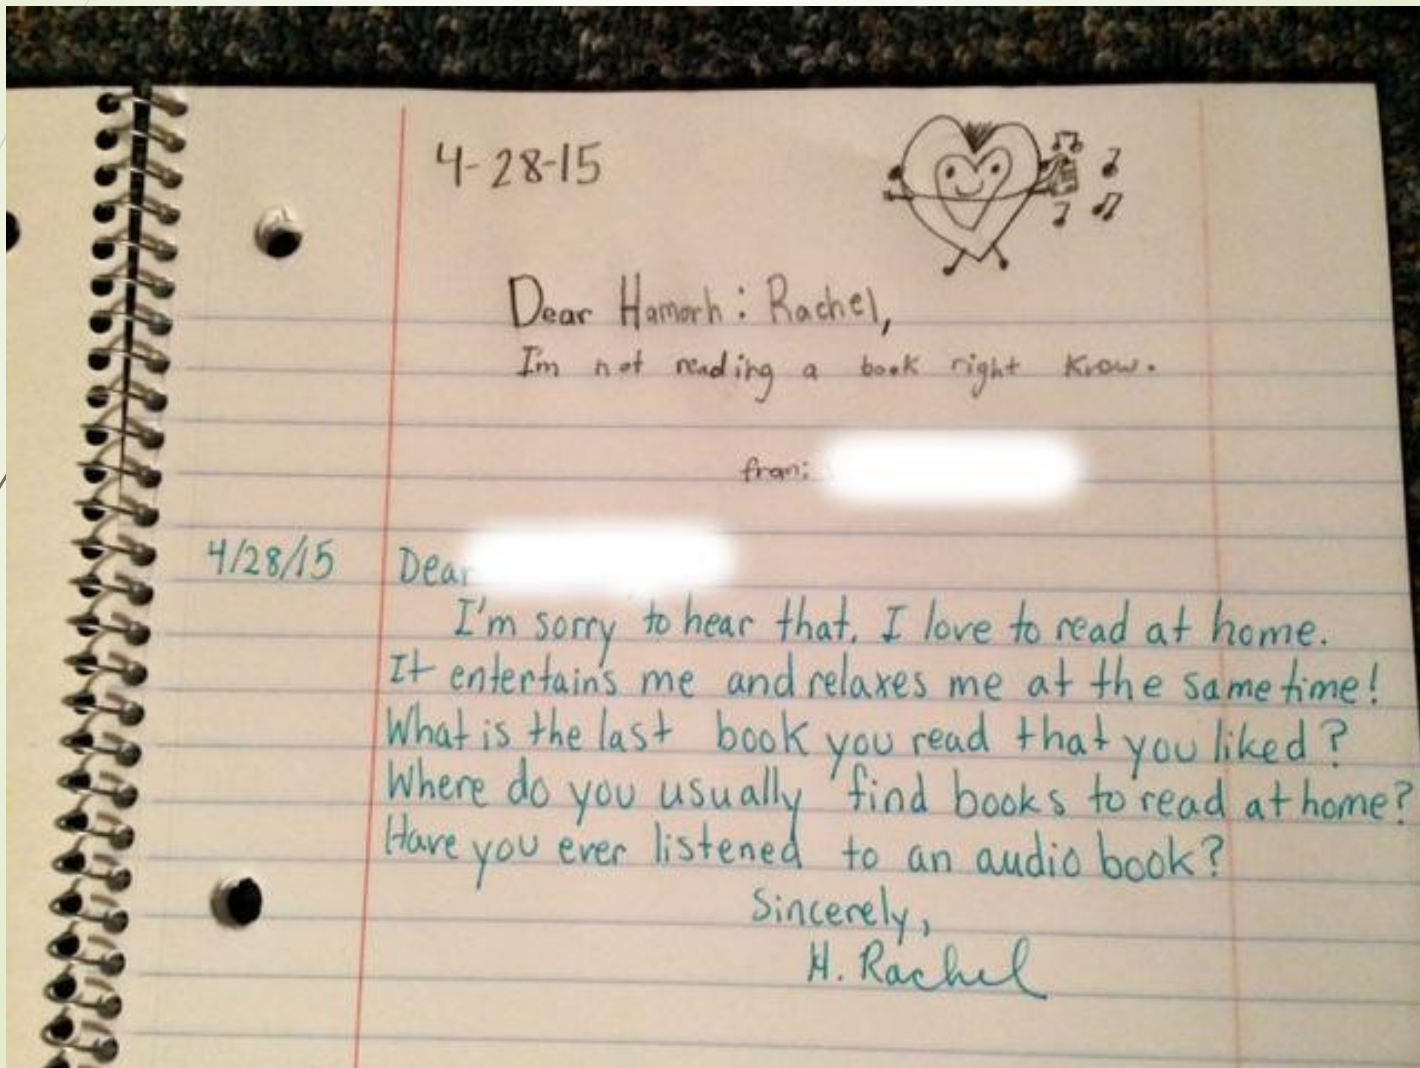 4-28-15
Dear Hamorh: Rachel,
I'm not reading a book right know.
from:
4/28/15 Dear
I'm sorry to hear that. I love to read at home.
It entertains me and relaxes me at the same time!
What is the last book you read that you liked?
Where do you usually find books to read at home?
Have you ever listened to an audio book?
Sincerely,
H. Rachel